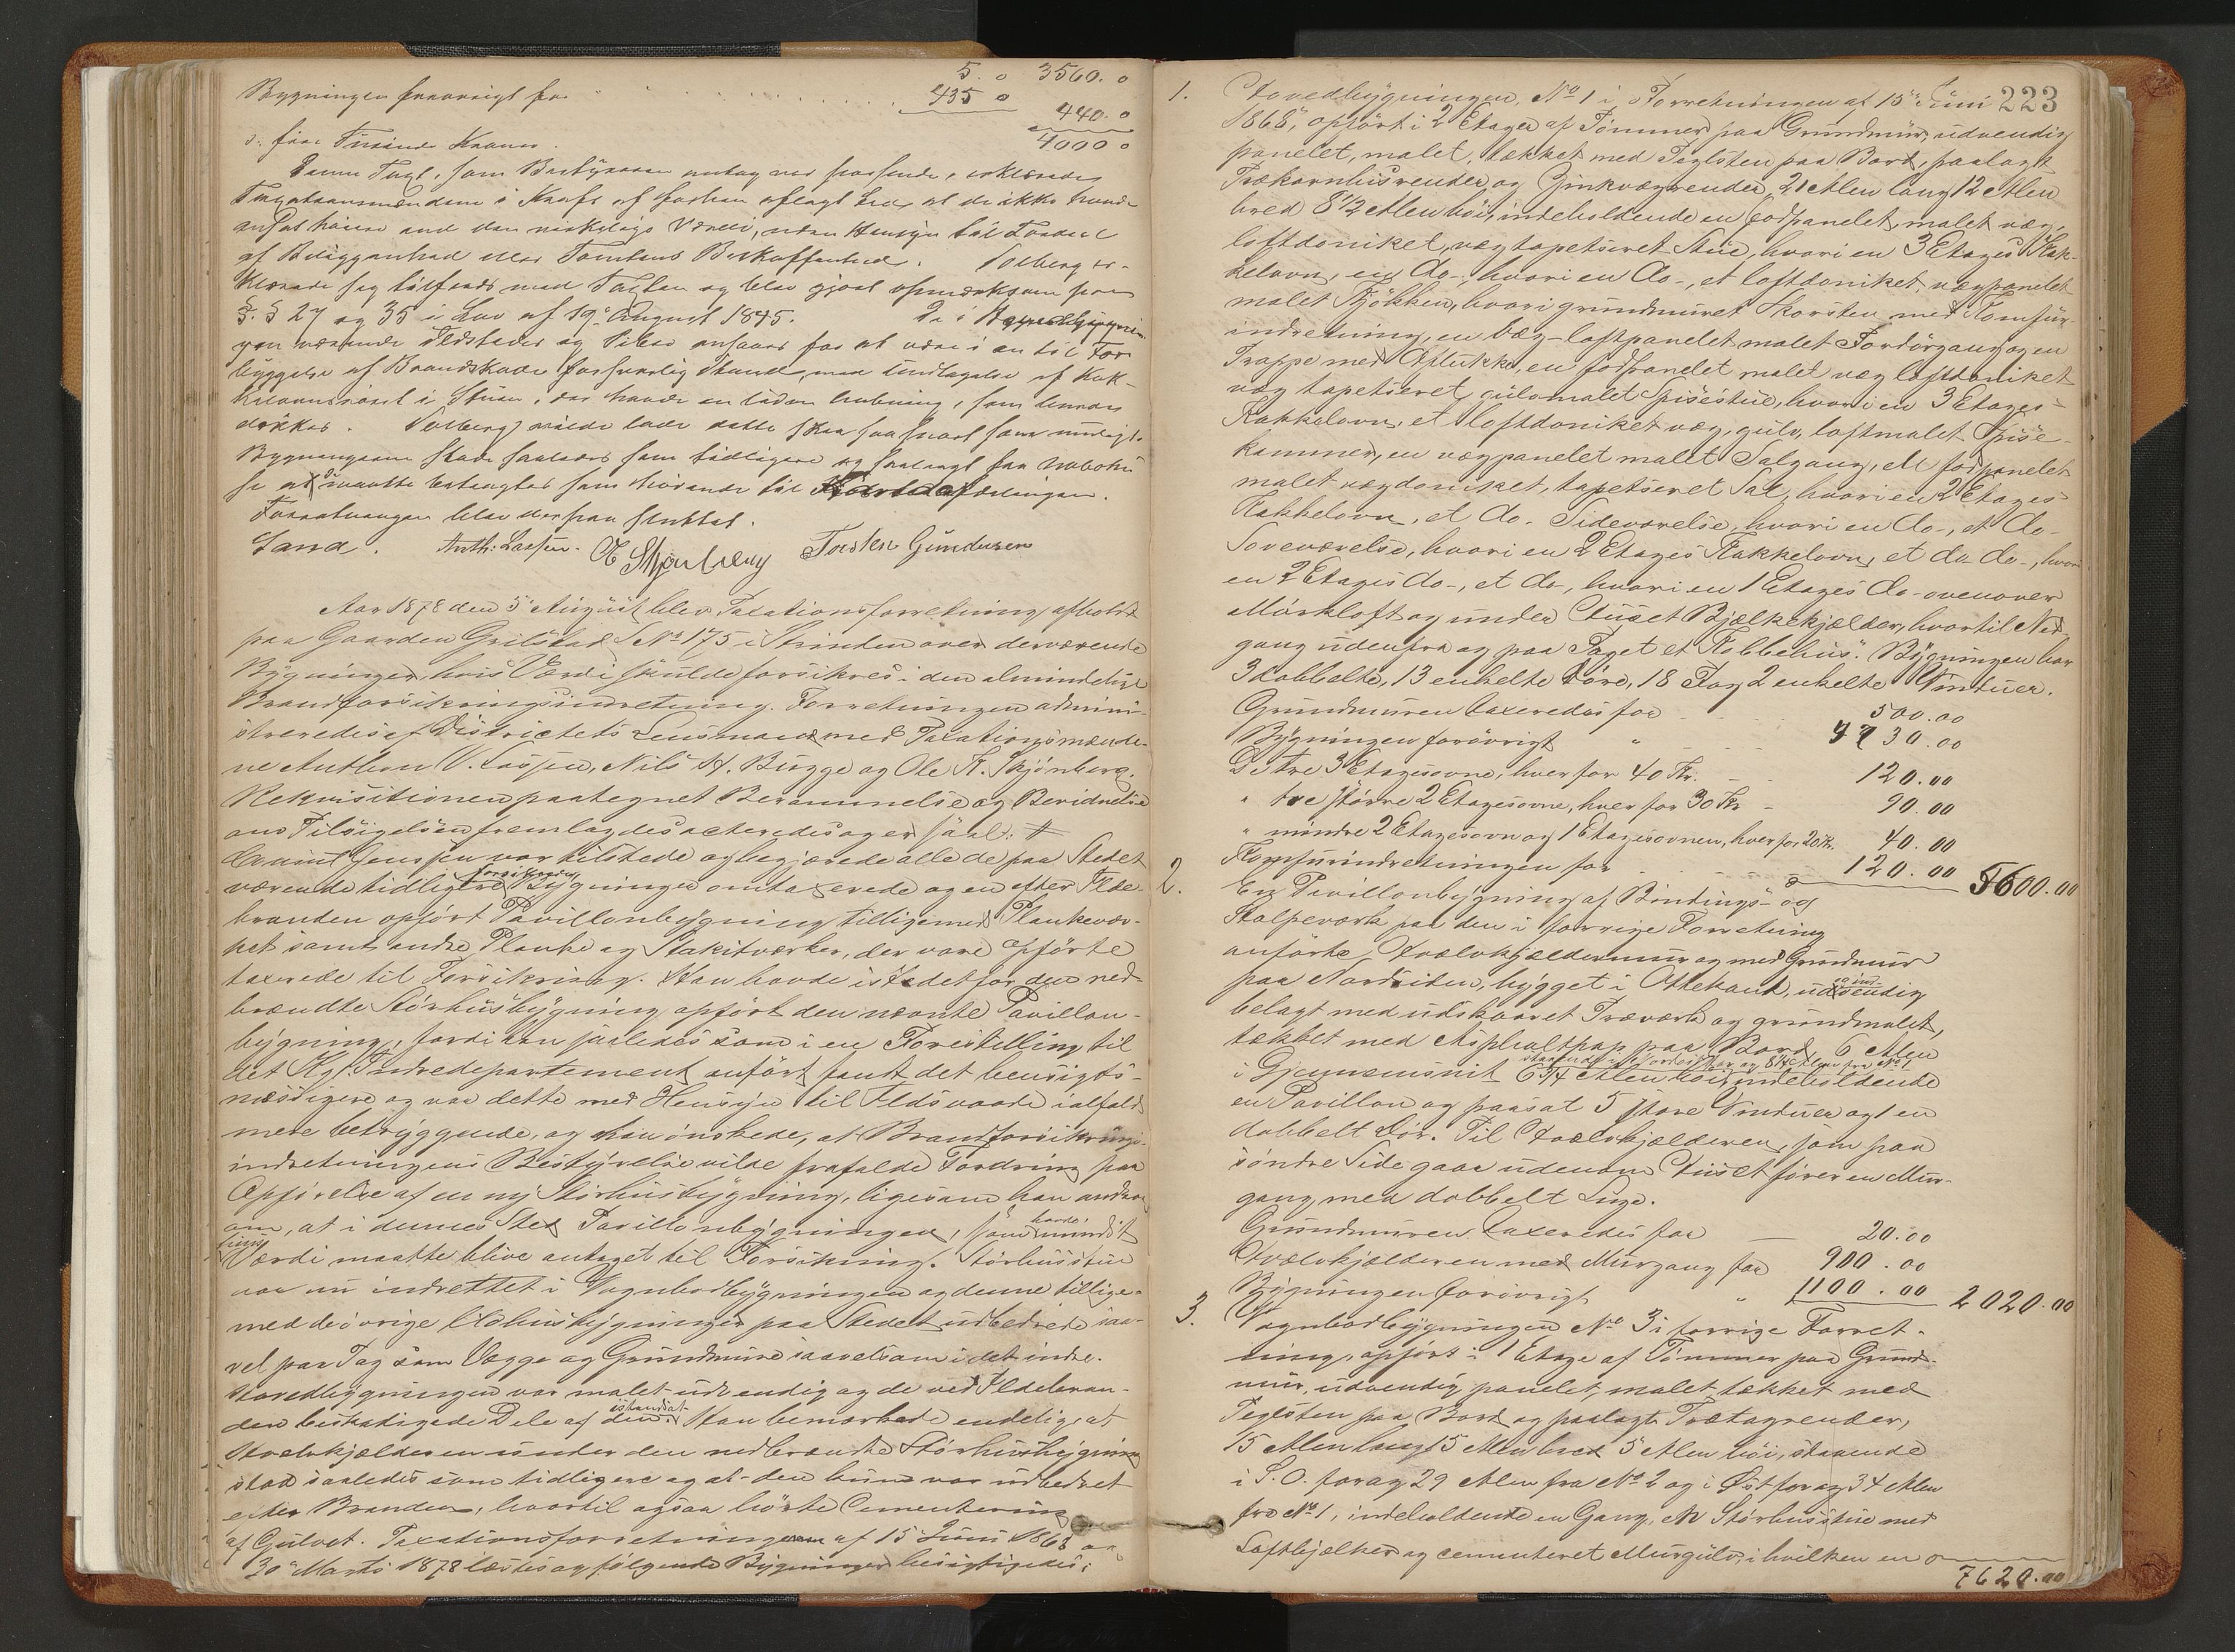 5. 0 3560. 0
Bygningen forøvrigt for " . . . . . . 435 0
440. 0
4000 0
o: fire Tusinde Kroner.
Denne Taxt, som Bestyreren antog var passende, erklærede
Taxationsmændene i Kraft af forhen aflagt Eed at de ikke havde
ansat høiere end den virkelige Værdi, uden Hensyn til Fordeel
af Beliggenhed eller Tomtens Beskaffenhed. Solberg er-
klærede sig tilfreds med Taxten og blev gjort opmærksom paa
§.§ 27 og 35 i Lov af 19de August 1845. De i Bygnin-
gen værende Ildsteder og Piber ansaaes for at være i en til Fore-
byggelse af Brandskade forsvarlig Stand, med Undtagelse af Kak-
kelovnsrøret i Stuen, der havde en liden Aabning, som burde
dækkes. Solberg vilde lade dette skee saa snart som muligt.
Bygningerne stode saaledes som tidligere og saalangt fra Nabohu-
se at de maatte betragtes som hørende til afdelingen.
Forretningen blev derpaa sluttet.
Sand. Anth: Lassen. O Skjønberg Torsten Gundersen
Aar 1878 den 5te August blev Taxationsforretning afholdt
paa Gaarden Grilstad L No 175 i Strinden over derværende
Bygninger, hvis Værdi skulde forsikres i den almindelige
Brandforsikringsindretning. Forretningen admini-
streredes af Districtets Lensmand med Taxationsmænde-
ne Anthon V. Lassen, Nils H. Bugge og Ole K. Skjønberg.
Rekvisitionen paategnet Berammelse og Bevidnelse
om Tilsigelsen fremlagdes acteredes og er saal: #
Jenssen var tilstede og begjærede alle de paa Stedet
værende tidligere forsikrede Bygninger omtaxerede og en efter Ilde-
branden opført Pavillonbygning tilligemed Plankevær-
ket samt andre Planke og Stakitværker, der vare opførte
taxerede til Forsikring. Han havde istedetfor den ned-
brændte Størhusbygning opført den nævnte Pavillon-
bygning, fordi han saaledes som i en Forestilling til
det Kgl. Indredepartement anført fandt det hensigts-
mæssigere og var dette med Hensyn til Ildsvaade ialfald
mere betryggende, og han ønskede, at Brandforsikrings-
indretningens Bestyrelse vilde frafalde Fordring paa
Opførelse af en ny Størhusbygning, ligesom han androg
om, at i dennes Sted Pavillonbygningen, som havde mindst
hiins Værdi maatte blive antaget til Forsikring. Størhusstue
var nu indrettet i Vognbodbygningen og denne tillige-
med de øvrige Udhusbygninger paa Stedet udbedrede saa-
vel paa Tag som Vægge og Grundmure saavelsom i det indre.
Hovedbygningen var malet udvendig og de ved Ildebran-
den beskadigede Dele af den istandsat. Han bemærkede endelig, at
Hvælvkjælderen under den nedbrændte Størhusbygning
stod saaledes som tidligere og at den kun var udbedret
efter Branden, hvortil ogsaa hørte Cementering
af Gulvet. Taxationsforretningerne af 15 Juni 1868 og
30te Marts 1878 læstes og følgende Bygninger besigtigedes:
223
1. Hovedbygningen, No 1 i Forretningen af 15de Juni
1868, opført i 2 Etager af Tømmer paa Grundmur, udvendig
panelet, malet, tækket med Teglsten paa Bord, paalagt
Trækarnhusrender og Zinkvægrender, 21 Alen lang 12 Alen
bred 8 1/2 Alen høi, indeholdende en fodpanelet, malet væg,
loftdoniket, vægtapetseret Stue, hvori en 3 Etages Kak-
kelovn, en do-, hvori en do-, et loftdoniket, vægpanelet
malet Kjøkken, hvori grundmuret Skorsten med Komfur-
indretning, en væg-loftpanelet malet Fordørgang og en
Trappe med Aflukke, en fodpanelet malet væg loftdoniket
væg tapetseret, gulvmalet Spisestue, hvori en 3 Etages-
Kakkelovn, et loftdoniket væg, gulv, loftmalet Spise-
kammer, en vægpanelet malet Salgang, en fodpanelet
malet vægdoniket, tapetseret Sal, hvori en 2 Etages
Kakkelovn, et do- Sideværelse, hvori en do-, et do-
Soveværelse, hvori en 2 Etages Kakkelovn, et do- do-, hvori
en 2 Etages do-, et do-, hvori en 1 Etages do- ovenover
Mørkloft og under Huset Bjælkekjælder, hvortil Ned-
gang udenfra og paa Taget et "Kobbehus". Bygningen har
3 dobbelte, 13 enkelte Døre, 18 Fag 2 enkelte Vinduer.
Grundmuren taxeredes for . . . 500.00
Bygningen forøvrigt " . . . 4730.00
De tre 3 Etagesovne, hver for 40 Kr. - - 120.00
" tre større 2 Etagesovne, hver for 30 Kr - 90.00
" mindre 2 Etagesovn og 1 Etagesovnen, hver for 20 Kr. 40.00
Komfurindretningen for . . . 120.00 5600.00
2. En Pavillonbygning af Bindings- og
Stolpeværk paa den i forrige Forretning
anførte Hvælvkjældermur og med Grundmur
paa Nordsiden, bygget i Ottekant, ud og ind-vendig
belagt med udskaaret Træværk og grundmalet,
tækket med Asphaltpap paa Bord 6 Alen
staaende i Nordost for og 8 1/4 Alen fra No 1
i Gjennemsnit 6 3/4 Alen høi, indeholdende
en Pavillon og paasat 5 store Vinduer og 1 en
dobbelt Dør. Til Hvælvkjælderen, som paa
søndre Side gaar udenom Huset fører en Mur-
gang med dobbelt Luge.
Grundmuren taxeredes for - 20.00
Hvælvkjælderen med Murgang for 900.00
Bygningen forøvrigt " 1100.00 2020.00
3. Vognbodbygningen No 3 i forrige Forret-
ning, opført i 1 Etage af Tømmer paa Grund-
mur, udvendig panelet, malet, tækket med
Teglsten paa Bord og paalagt Trætagrender,
15 Alen lang 15 Alen bred 5 Alen høi, staaende
i S.O. for og 29 Alen fra No 2 og i Øst for og 34 Alen
fra No 1, indeholdende en Gang, en Størhusstue med
Loftbjælker og cementeret Murgulv, i hvilken en
7620.00